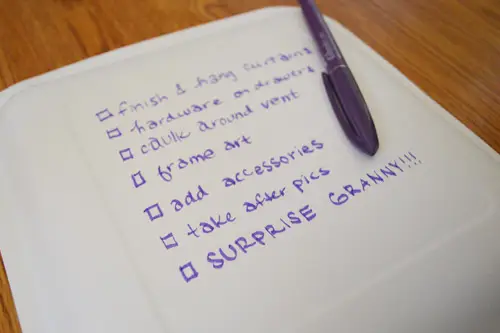 ☐ finish & hang curtains
☐ hardware on drawers
☐ caulk around vent
☐ frame art
☐ add accessories
☐ take after pics
☐ SURPRISE GRANNY!!!